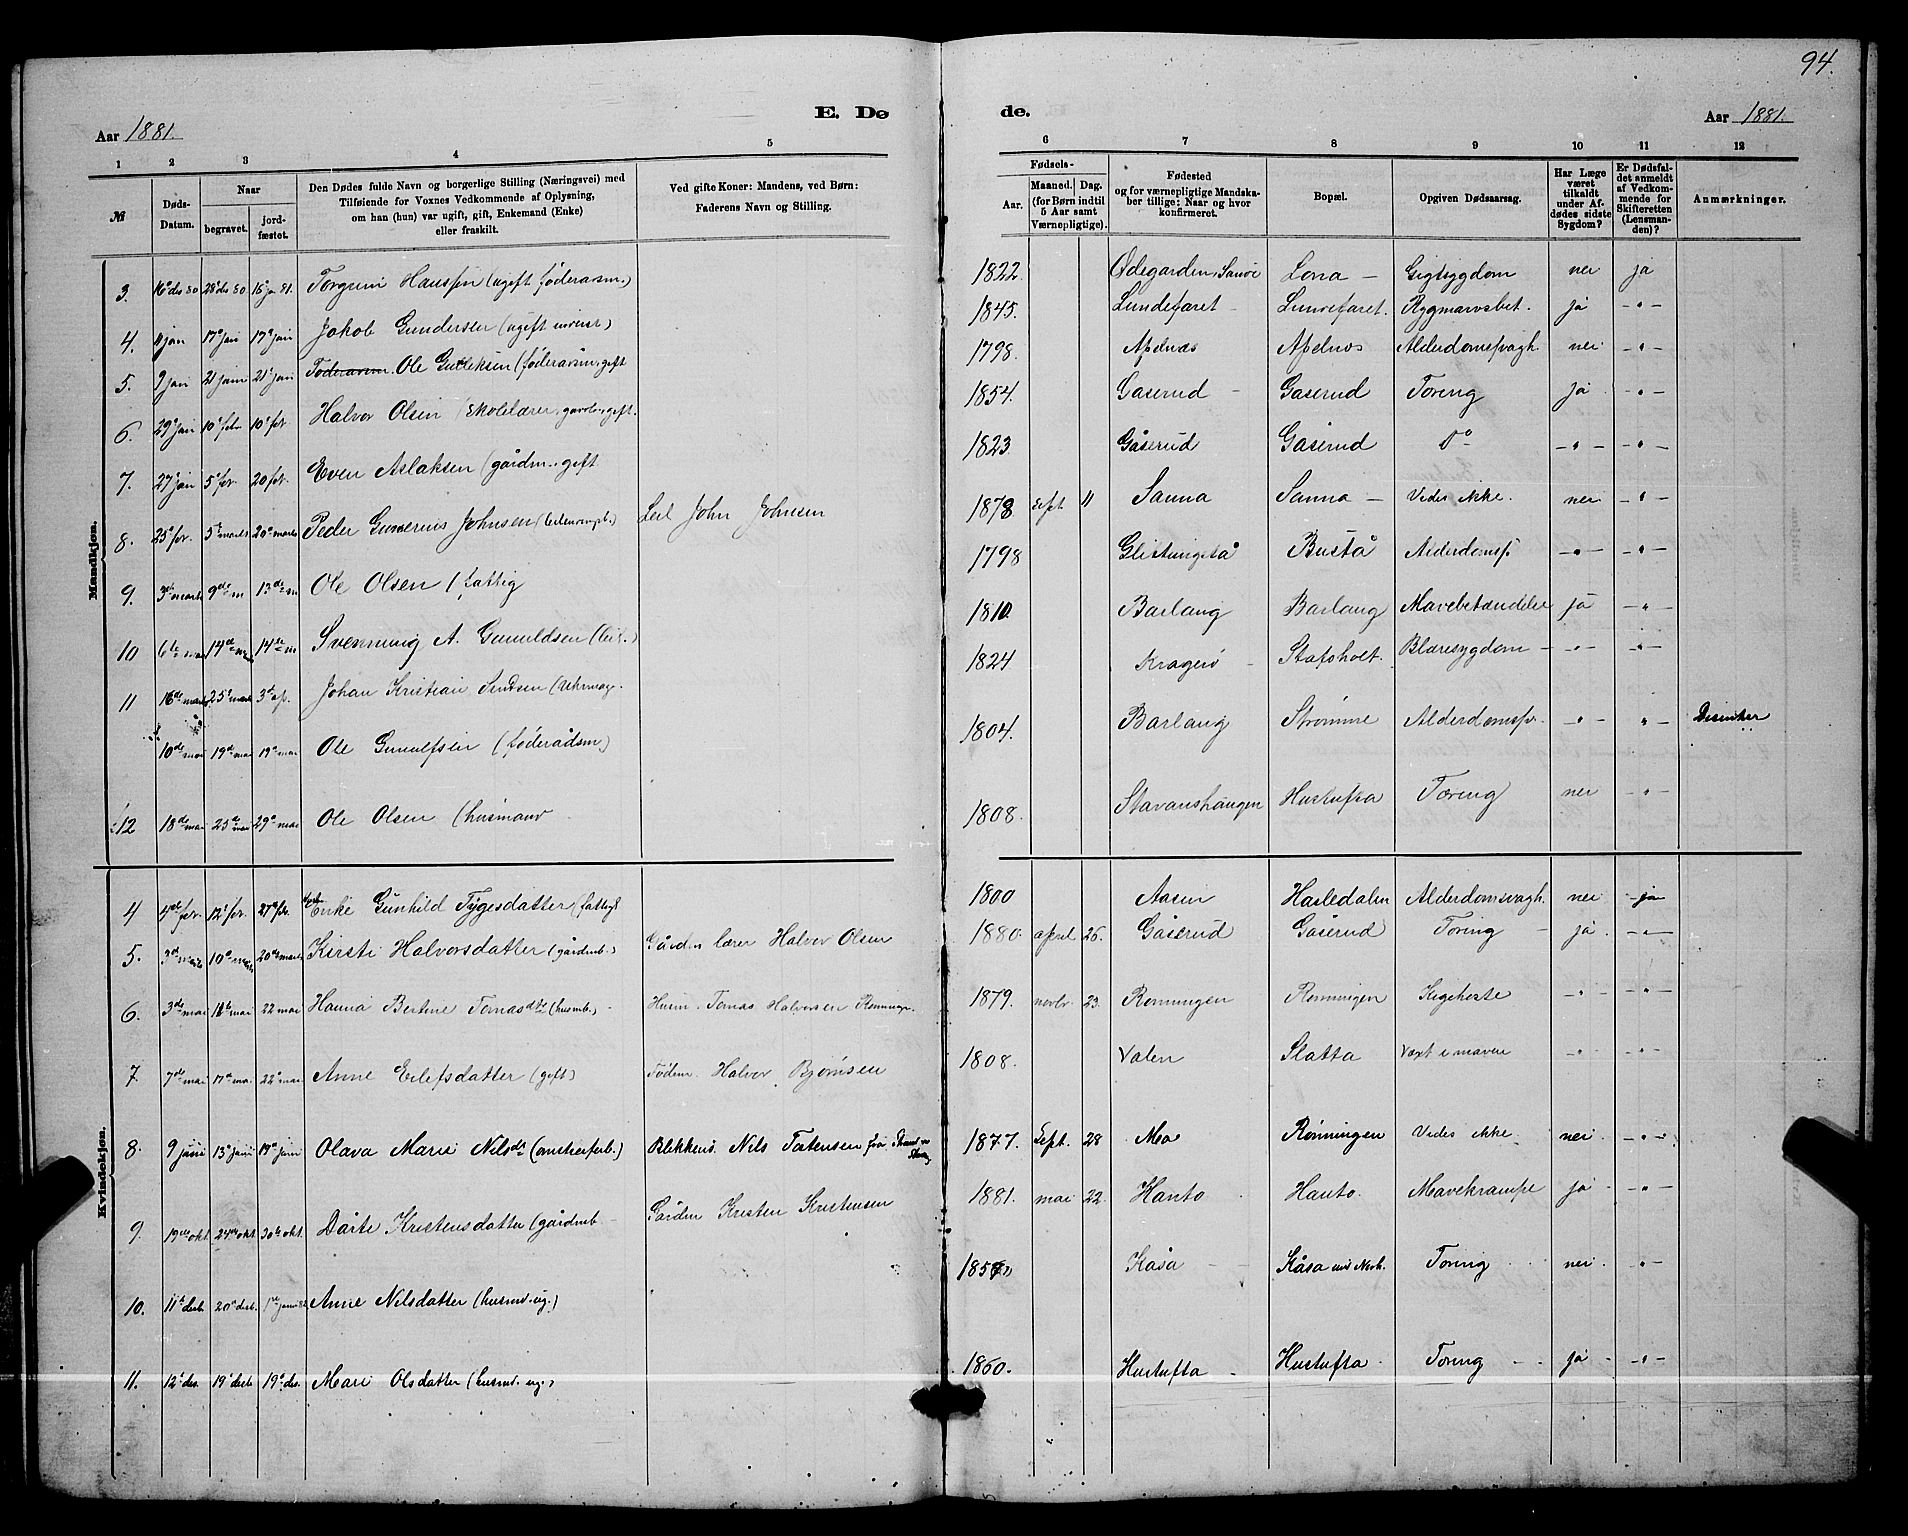 94.
E. Dø
de.
Aar 1881.
Aar 1881.
1 2 3 4 5 6 7 8 9 10 11 12
№
Døds-Datum.
Naar
begravet.
jordfæstet.
Den Dødes fulde Navn og borgerlige Stilling (Næringsvei) med Tilføiende for Voxnes Vedkommende af Oplysning, om han (hun) var ugift, gift, Enkemand (Enke) eller fraskilt.
Ved gifte Koner: Mandens, ved Børn: Faderens Navn og Stilling.
Fødsels-
Aar.
Maaned. Dag.
(for Børn indtil 5 Aar samt Værnepligtige).
Fødested og for værnepligtige Mandskaber tillige: Naar og hvor konfirmeret.
Bopæl.
Opgiven Dødsaarsag.
Har Læge været tilkaldt under Afdødes sidste Sygdom?
Er Dødsfaldet anmeldt af Vedkommende for Skifteretten (Lensmanden)?
Anmærkninger.
Mandkjøn.
3. 16 des 80 28 des 80 16 jan 81. Torgrim Hanssen (ugift føderaam.) 1822. Ødegarden, Lona Gigtsygdom nei ja
4. 11 jan 17 jan 17 jan Jakob Gundersen (ugift 1845. Lundefaret Lundefaret. Rygmarvsbet. ja -"-
5. 9 jan 21 jan 21 jan Føderaam. Ole Gulleksen (føderaam, gift 1798. Apelnæs Apelnæs Alderdomssvagh. nei -"-
6. 29 jan 10 febr 10 fer Halvor Olsen (skolelærer, gift. 1854. Gaserud Gaserud Tæring ja -"-
7. 27 jan 5 fer. 20 fer. Even Aslaksen (gårdm., gift 1823. Gåserud Gåserud Do -"- -"-
8. 25 fer. 5 marts 20 marts Peder Gunerius Johnsen Leil John Johnsen 1878 sept 11 Sanna Sanna Vides ikke. nei -"-
9. 3 marts 9de m 13de m Ole Olsen (fattig 1798 Glistungstå Bustå Alderdomsf. -"- -"-
10 6te mar 14de mar 14de m Svennung A. Gunuldsen 1810. Barlang Barlang Mavebetændelse ja -"-
11 16de marts 25 marts 3d ap. Johan Kristian (Uhrmag. 1824. Kragerø Stafsholt. Blæresygdom -"- -"-
10de mai 19de mai 19 mai Ole Gunulfsen (føderådsm) 1804. Barlang Strømme Alderdomssv. -"- -"- Dissenter
12 18de mai 25de mai 29 mai Ole Olsen (husmand 1808. Stavanshaugen Hustufta Tæring nei -"-
Kvindekjøn.
4 4de fer. 12 fer. 27 feb. Enke Gunhild Tygesdatter (fattig) 1800 Aasen Hasledalen Alderdomsvagh. nei ja
5. 3de marts 10 marts 20de marts Kirsti Halvorsdatter (gårdmb.) lærer Halvor Olsen 1880. april 26. Gåserud Gåserud Tæring ja -"-
6. 3de mai 16 mai 22 mai Hanna Bertine Tomasdtr (husmb.) Husm. Tomas Halvorsen Rønningen. 1879. novbr. 23. Rønningen Rønningen Kighoste -"- -"-
7. 7de mai 17de mai. 22 mai Anne Eilefsdatter (gift) Fødem. Halvor Bjørnsen 1808. Valen Slatta Vext i maven -"- -"-
8. 9 juni 13 juni 19 juni Olava Marie Nilsdt Blekkens. Nils Tostensen fra 1877. Sept. 28 Mo Rønningen Vides ikke. nei -"-
9. 19de okt. 24de okt 30te okt. Dårte Kristensdatter (gårdmb. Gårdm Kristen Kristensen 1881. mai 22. Hanto Hanto. Mavekrampe ja -"-
10. 11te desb. 20 desb. Anne Nilsdatter (husmd. ug.) Kåsa Kåsa Tæring nei -"-
11. 12 des. 19 desb 19 des. Mari Olsdatter (husmd. ug.) 1860. Hustufta Hustufta Tæring ja -"-